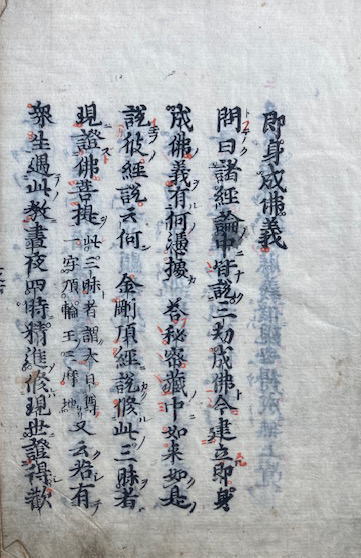 即身成佛義
問曰諸經論中皆説三劫成佛今建立即身
成佛義有何憑據 荅秘密藏中如来如是
説彼經説云何 金剛頂經説修此三昧者
現證佛菩提 此三昧者謂大日尊
一字頂輪王三摩地 又云若有
衆生遇此教晝夜四時精進修現世證得歡